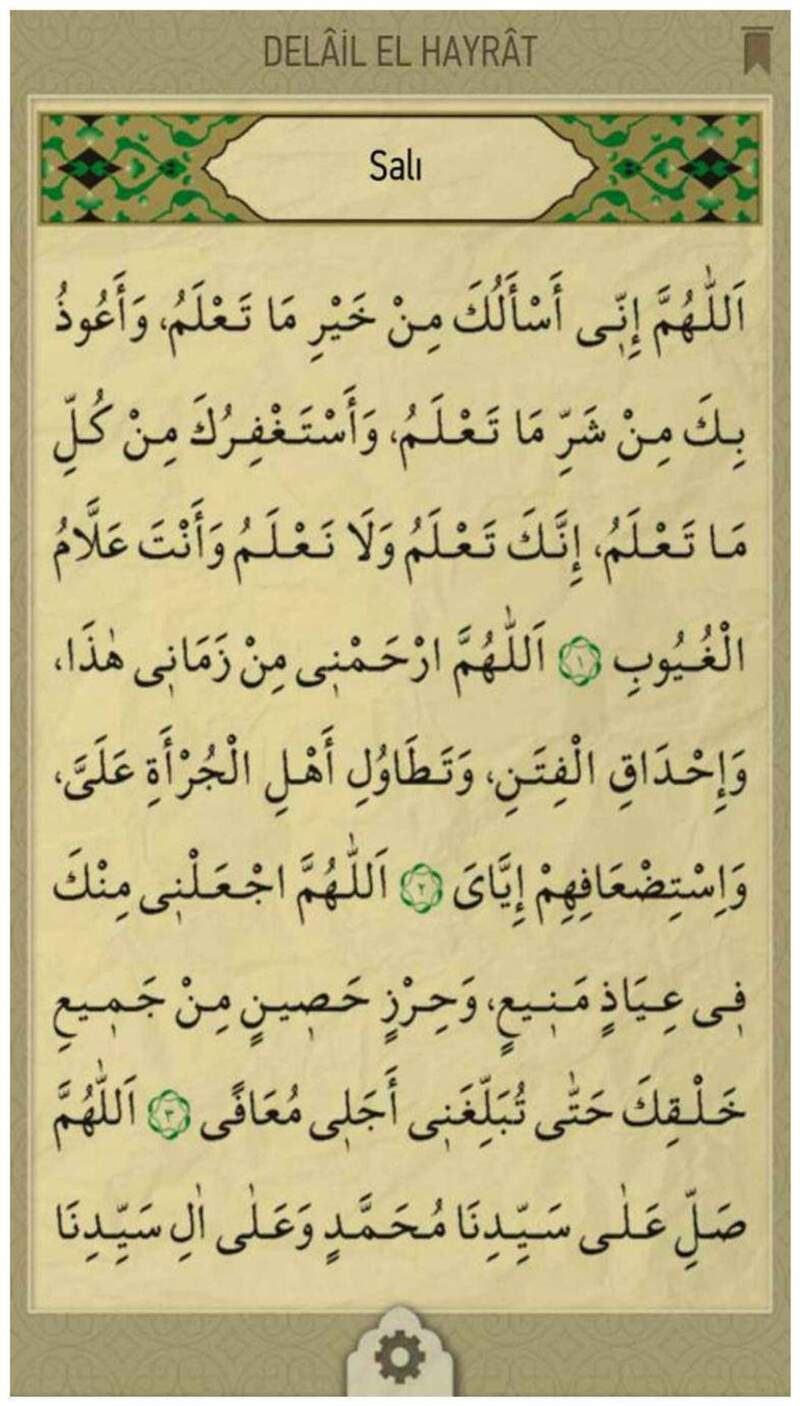 DELÂİL EL HAYRÂT
Salı
اَللّٰهُمَّ إِنِّى أَسْأَلُكَ مِنْ خَيْرِ مَا تَعْلَمُ، وَأَعُوذُ
بِكَ مِنْ شَرِّ مَا تَعْلَمُ، وَأَسْتَغْفِرُكَ مِنْ كُلِّ
مَا تَعْلَمُ، إِنَّكَ تَعْلَمُ وَلَا نَعْلَمُ وَأَنْتَ عَلَّامُ
الْغُيُوبِ ﴿١﴾ اَللّٰهُمَّ ارْحَمْنِى مِنْ زَمَانِى هٰذَا،
وَإِحْدَاقِ الْفِتَنِ، وَتَطَاوُلِ أَهْلِ الْجُرْأَةِ عَلَىَّ،
وَاِسْتِضْعَافِهِمْ إِيَّاىَ ﴿٢﴾ اَللّٰهُمَّ اجْعَلْنِى مِنْكَ
فِى عِيَاذٍ مَنِيعٍ، وَحِرْزٍ حَصِينٍ مِنْ جَمِيعِ
خَلْقِكَ حَتّٰى تُبَلِّغَنِى أَجَلِى مُعَافًى ﴿٣﴾ اَللّٰهُمَّ
صَلِّ عَلٰى سَيِّدِنَا مُحَمَّدٍ وَعَلٰى اٰلِ سَيِّدِنَا